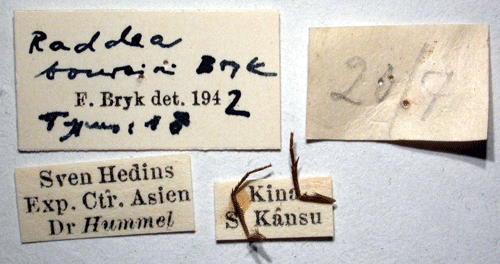 Raddea
Bryk
F. Bryk det. 1942
Typus, 1 ♂
20/7
Sven Hedins
Exp. Ctr. Asien
Dr Hummel
Kina
S. Kânsu